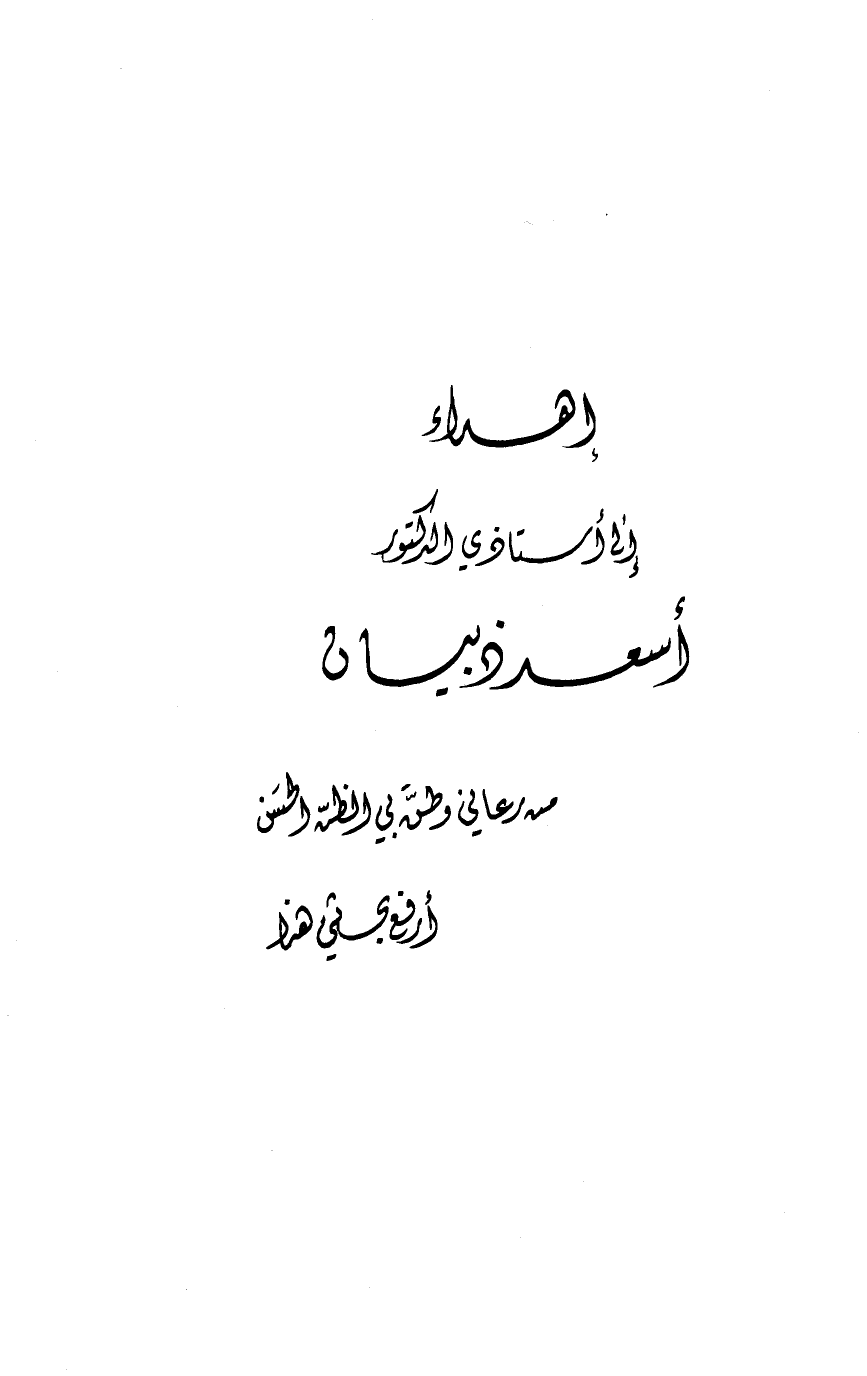 إهداء
إلى أستاذي الدكتور
أسعد ذبيان
من رعاني وظنَّ بي الظنّ الحسَن
أرفع بحثي هذا